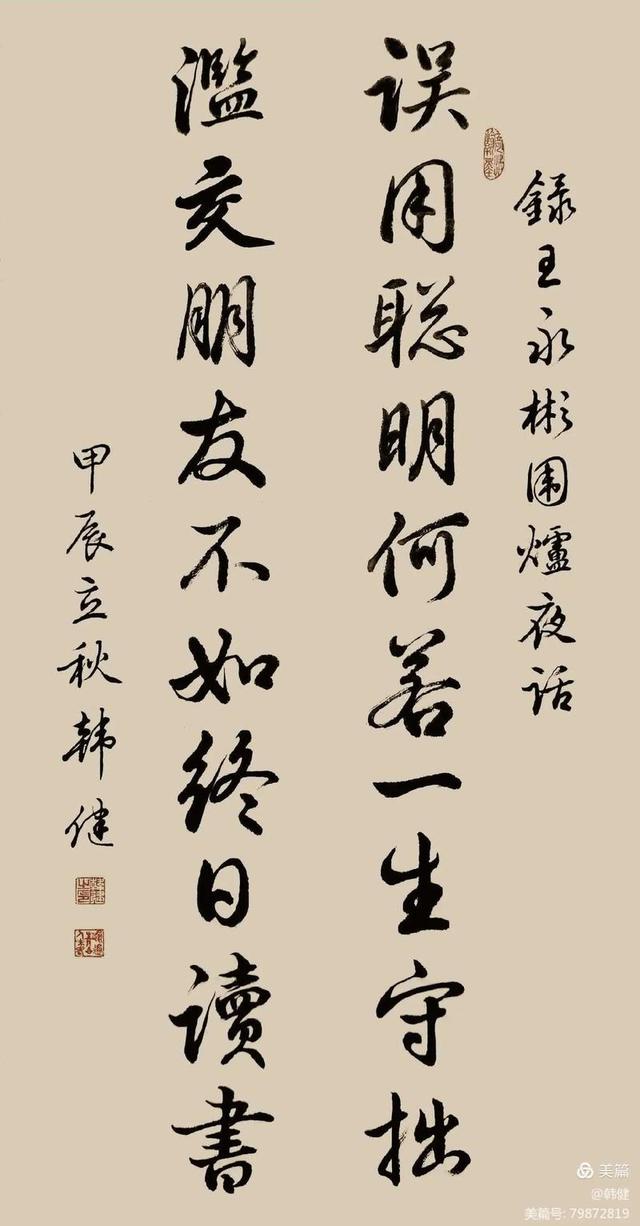 録王永彬围爐夜话
误用聪明何若一生守拙
濫交朋友不如终日讀書
甲辰立秋韩健
美篇
@韩健
美篇号: 79872819